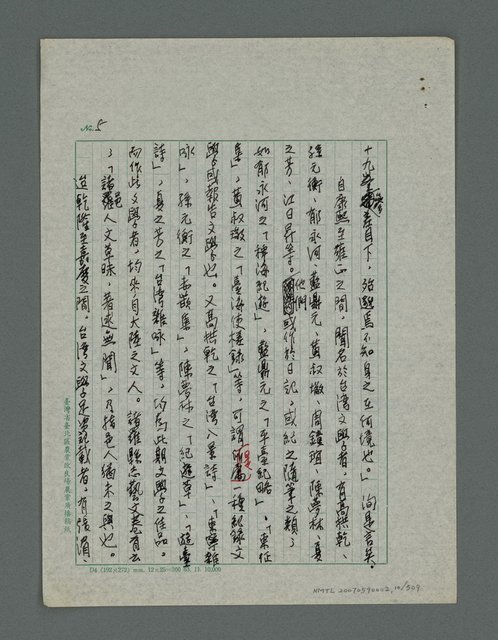 No. 5
十九差目下,強駐馬不知身之在何境也。」洵是言矣。
自康熙至雍正之間,聞名於台湾文學者,有高拱乾、
孫元衡、郁永河、藍鼎元、黃叔璥、周鍾瑄、陳夢林、夏
之芳、江日昇等。他們或作於日記,或紀之隨筆之類,
如郁永河之「稗海紀遊」,藍鼎元之「平臺紀略」、「東征
集」,黃叔璥之「臺海使槎錄」等,可謂是一種紀錄文
學或報告文學也。又高拱乾之「台湾八景詩」、「東寧雜
咏」,孫元衡之「赤嵌集」,陳夢林之「紀遊草」、「遊臺
詩」,夏之芳之「台湾雜咏」等,均為此期文學之佳品。
而作此文學者,均來自大陸之文人。諸羅縣志藝文志有云
:「諸羅邑人文草昧,著述無聞」,乃指邑人猶不之興也。
迨乾隆至嘉慶之間,台湾文學最ient記載者,有張湄、
臺灣省臺北區農業改良場農業廣播稿紙
D4 (192×272) mm. 12×25=300 63. 11. 10,000
NMTL 20070590002, 10/509